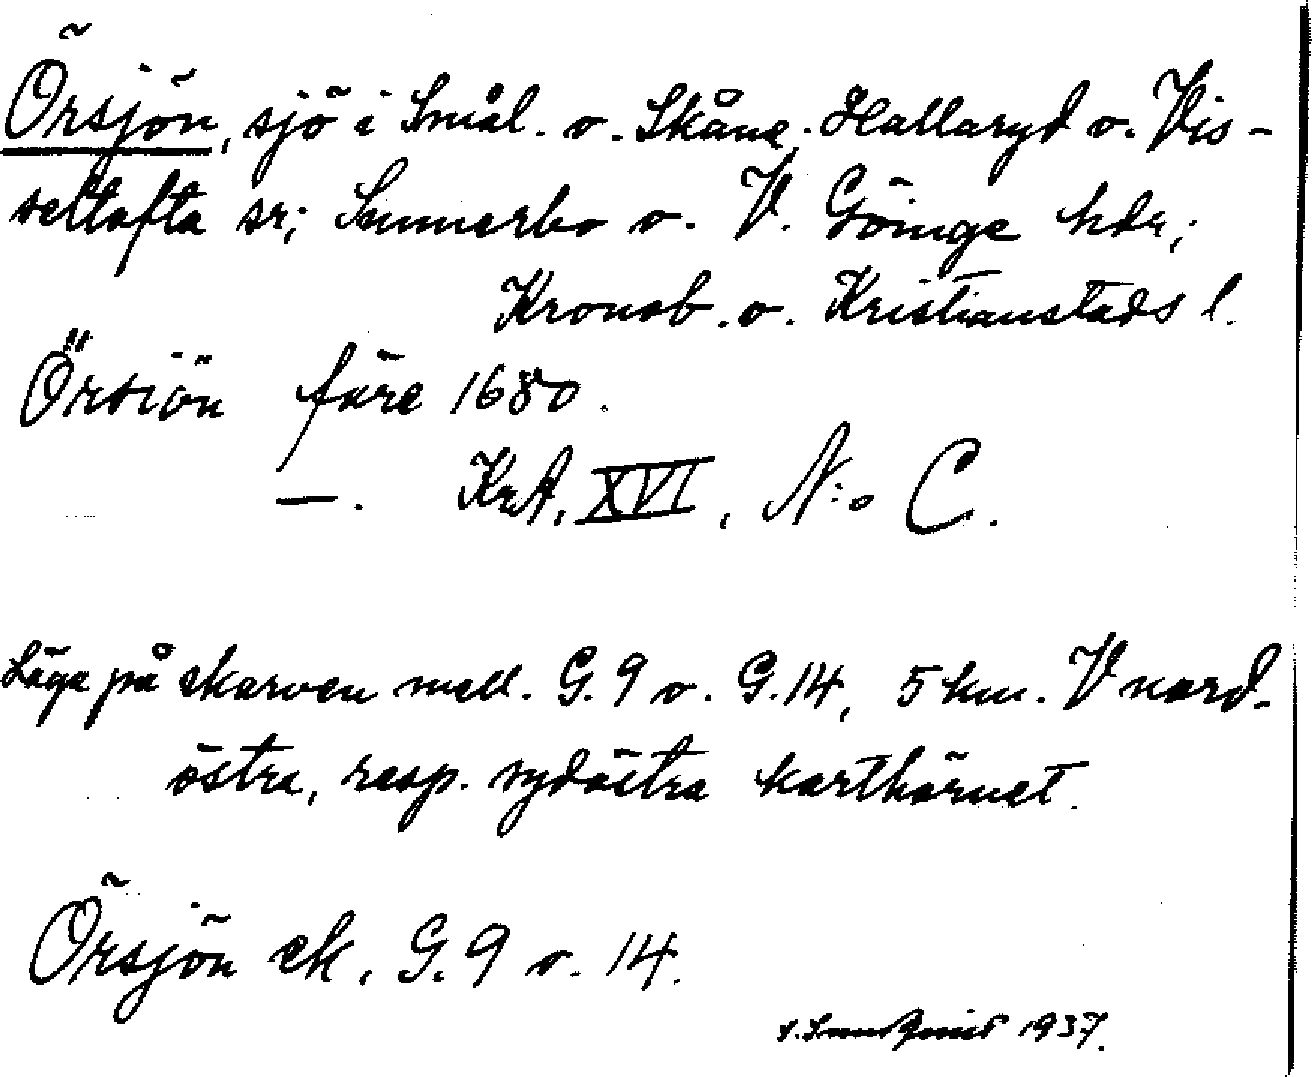 Örsjön, sjö i Smål. o. Skåne; Hallaryd o. Vis-
seltofta sr; Sunnerbo o. V. Göinge hdr;
Kronob. o. Kristianstads l.
Örsiön före 1680.
—. KrA, XVI, N:o C.
Läge på skarven mell. G. 9 o. G. 14, 5 km. V nord-
östra, resp. sydöstra karthörnet.
Örsjön ek. G. 9 o. 14.
1937.